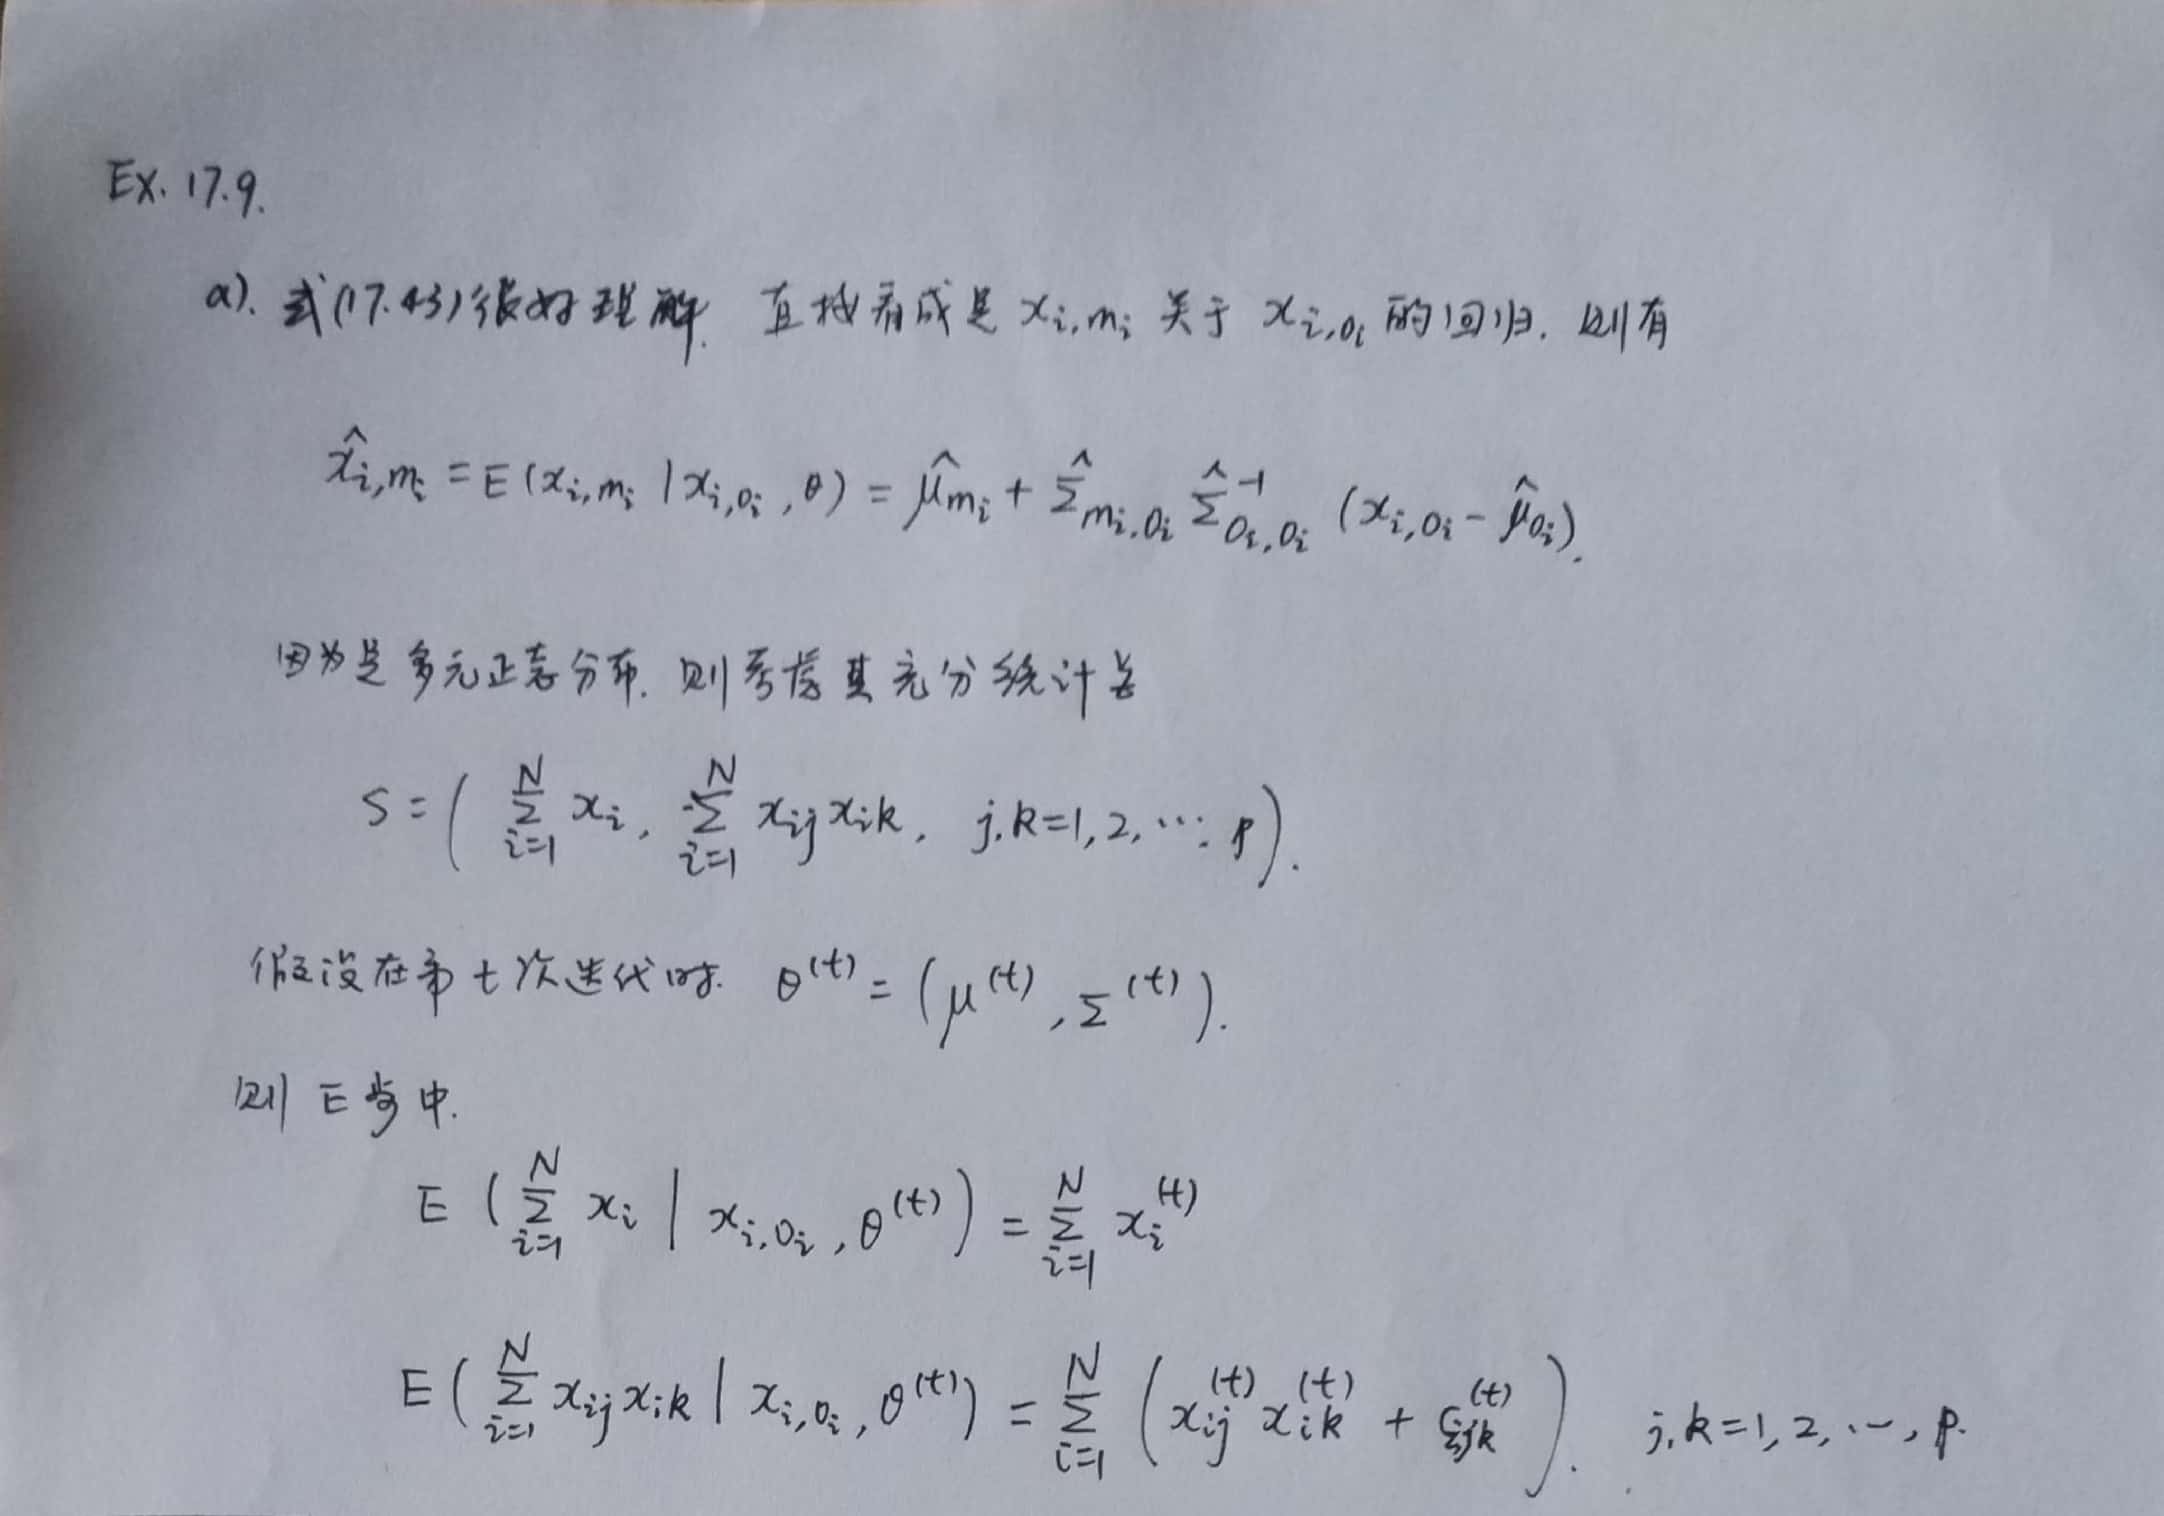 Ex. 17.9.
a). 式(17.43)很好理解. 直接看成是 x_{i,m_i} 关于 x_{i,o_i} 的回归. 则有
x̂_{i,m_i} = E(x_{i,m_i} | x_{i,o_i}, θ) = μ̂_{m_i} + Σ̂_{m_i,o_i} Σ̂^{-1}_{o_i,o_i} (x_{i,o_i} - μ̂_{o_i}).
因为是多元正态分布. 则考虑其充分统计量
S = ( ∑_{i=1}^{N} x_i, ∑_{i=1}^{N} x_{ij} x_{ik}, j,k=1,2,…,p ).
假设在第t次迭代时. θ^{(t)} = (μ^{(t)}, Σ^{(t)}).
则 E步中.
E ( ∑_{i=1}^{N} x_i | x_{i,o_i}, θ^{(t)} ) = ∑_{i=1}^{N} x_i^{(t)}
E ( ∑_{i=1}^{N} x_{ij} x_{ik} | x_{i,o_i}, θ^{(t)} ) = ∑_{i=1}^{N} ( x_{ij}^{(t)} x_{ik}^{(t)} + c_{ijk}^{(t)} ). j,k=1,2,…,p.